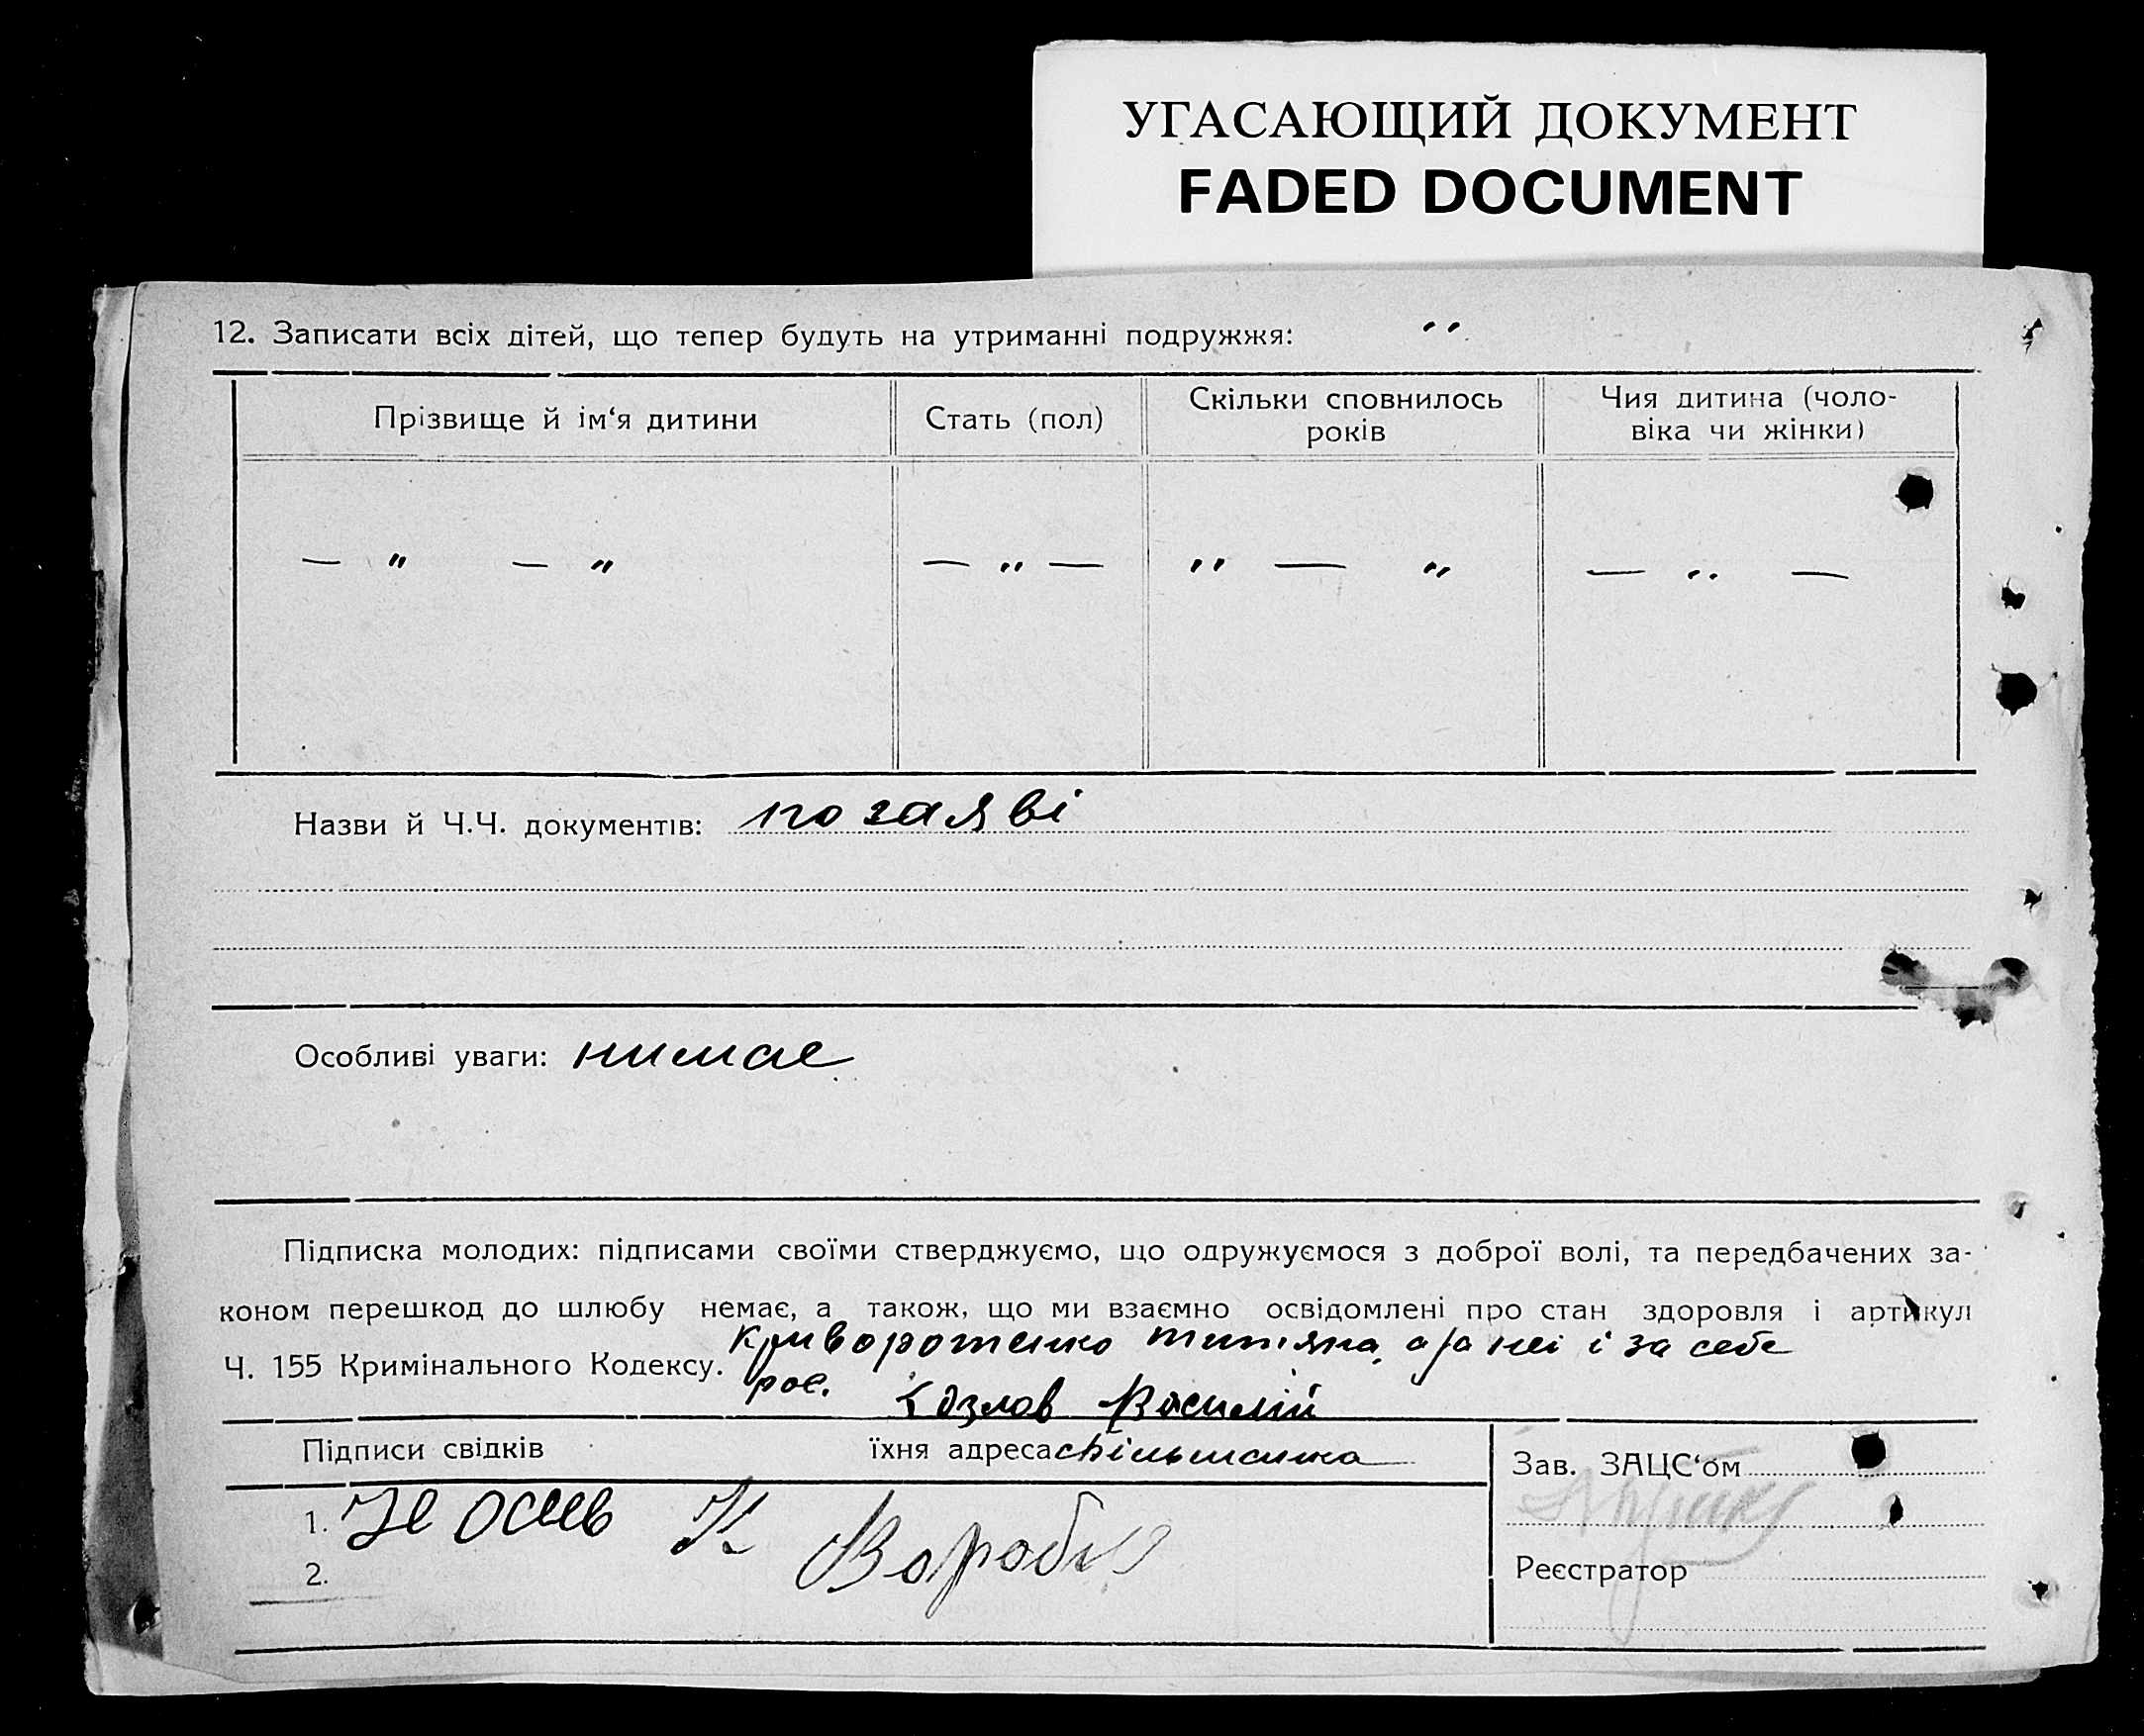 УГАСАЮЩИЙ ДОКУМЕНТ
FADED DOCUMENT
12. Записати всіх дітей, що тепер будуть на утриманні подружжя: "
Прізвище й ім‘я дитини
Стать (пол)
Скільки сповнилось
років
Чия дитина (чоло-
віка чи жінки)
— " — " — " — " — " — " —
Назви й Ч.Ч. документів: по заяві
Особливі уваги: нимае
Підписка молодих: підписами своїми стверджуємо, що одружуємося з доброї волі, та передбачених за-
коном перешкод до шлюбу немає, а також, що ми взаємно освідомлені про стан здоровля і артикул
Ч. 155 Кримінального Кодексу. Криворотенко и за себе
рос. Козлов Василій
Підписи свідків
їхня адреса
Зав. ЗАЦС‘ом
1.
2.
Реєстратор